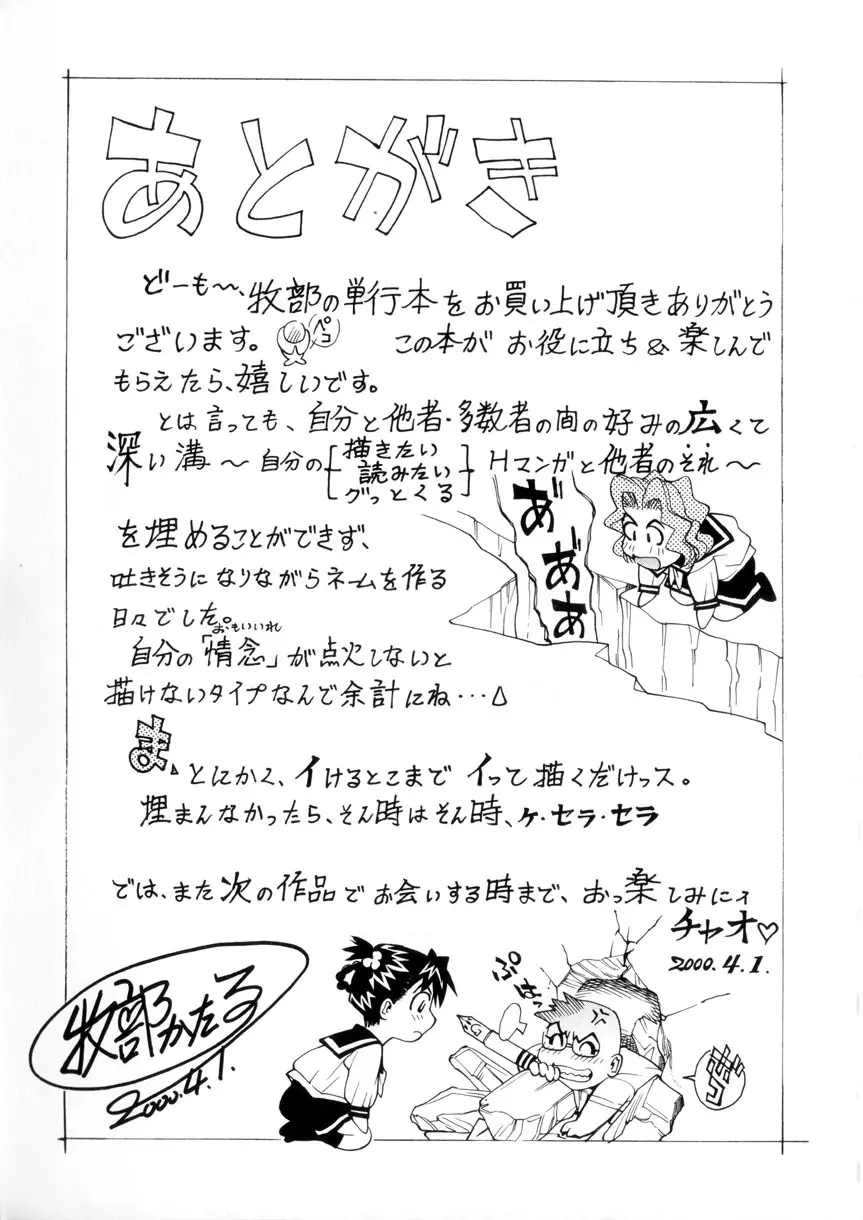 あとがき
どーも〜、牧部の単行本をお買い上げ頂きありがとう
ございます。ペコ この本がお役に立ち&楽しんで
もらえたら、嬉しいです。
とは言っても、自分と他者・多数者の間の好みの広くて
深い溝〜自分の[描きたい
読みたい
グっとくる]Hマンガと他者のそれ〜
を埋めることができず、
吐きそうになりながらネームを作る
日々でした。
おもいいれ
自分の「情念」が点火しないと
描けないタイプなんで余計にね…
ま、とにかく、イけるとこまでイって描くだけっス。
埋まんなかったら、そん時はそん時、ケ・セラ・セラ
では、また次の作品でお会いする時まで、おっ楽しみにィ
チャオ♡
2000.4.1.
あ゛
あ゛あ゛
牧部かたる
2000.4.1.